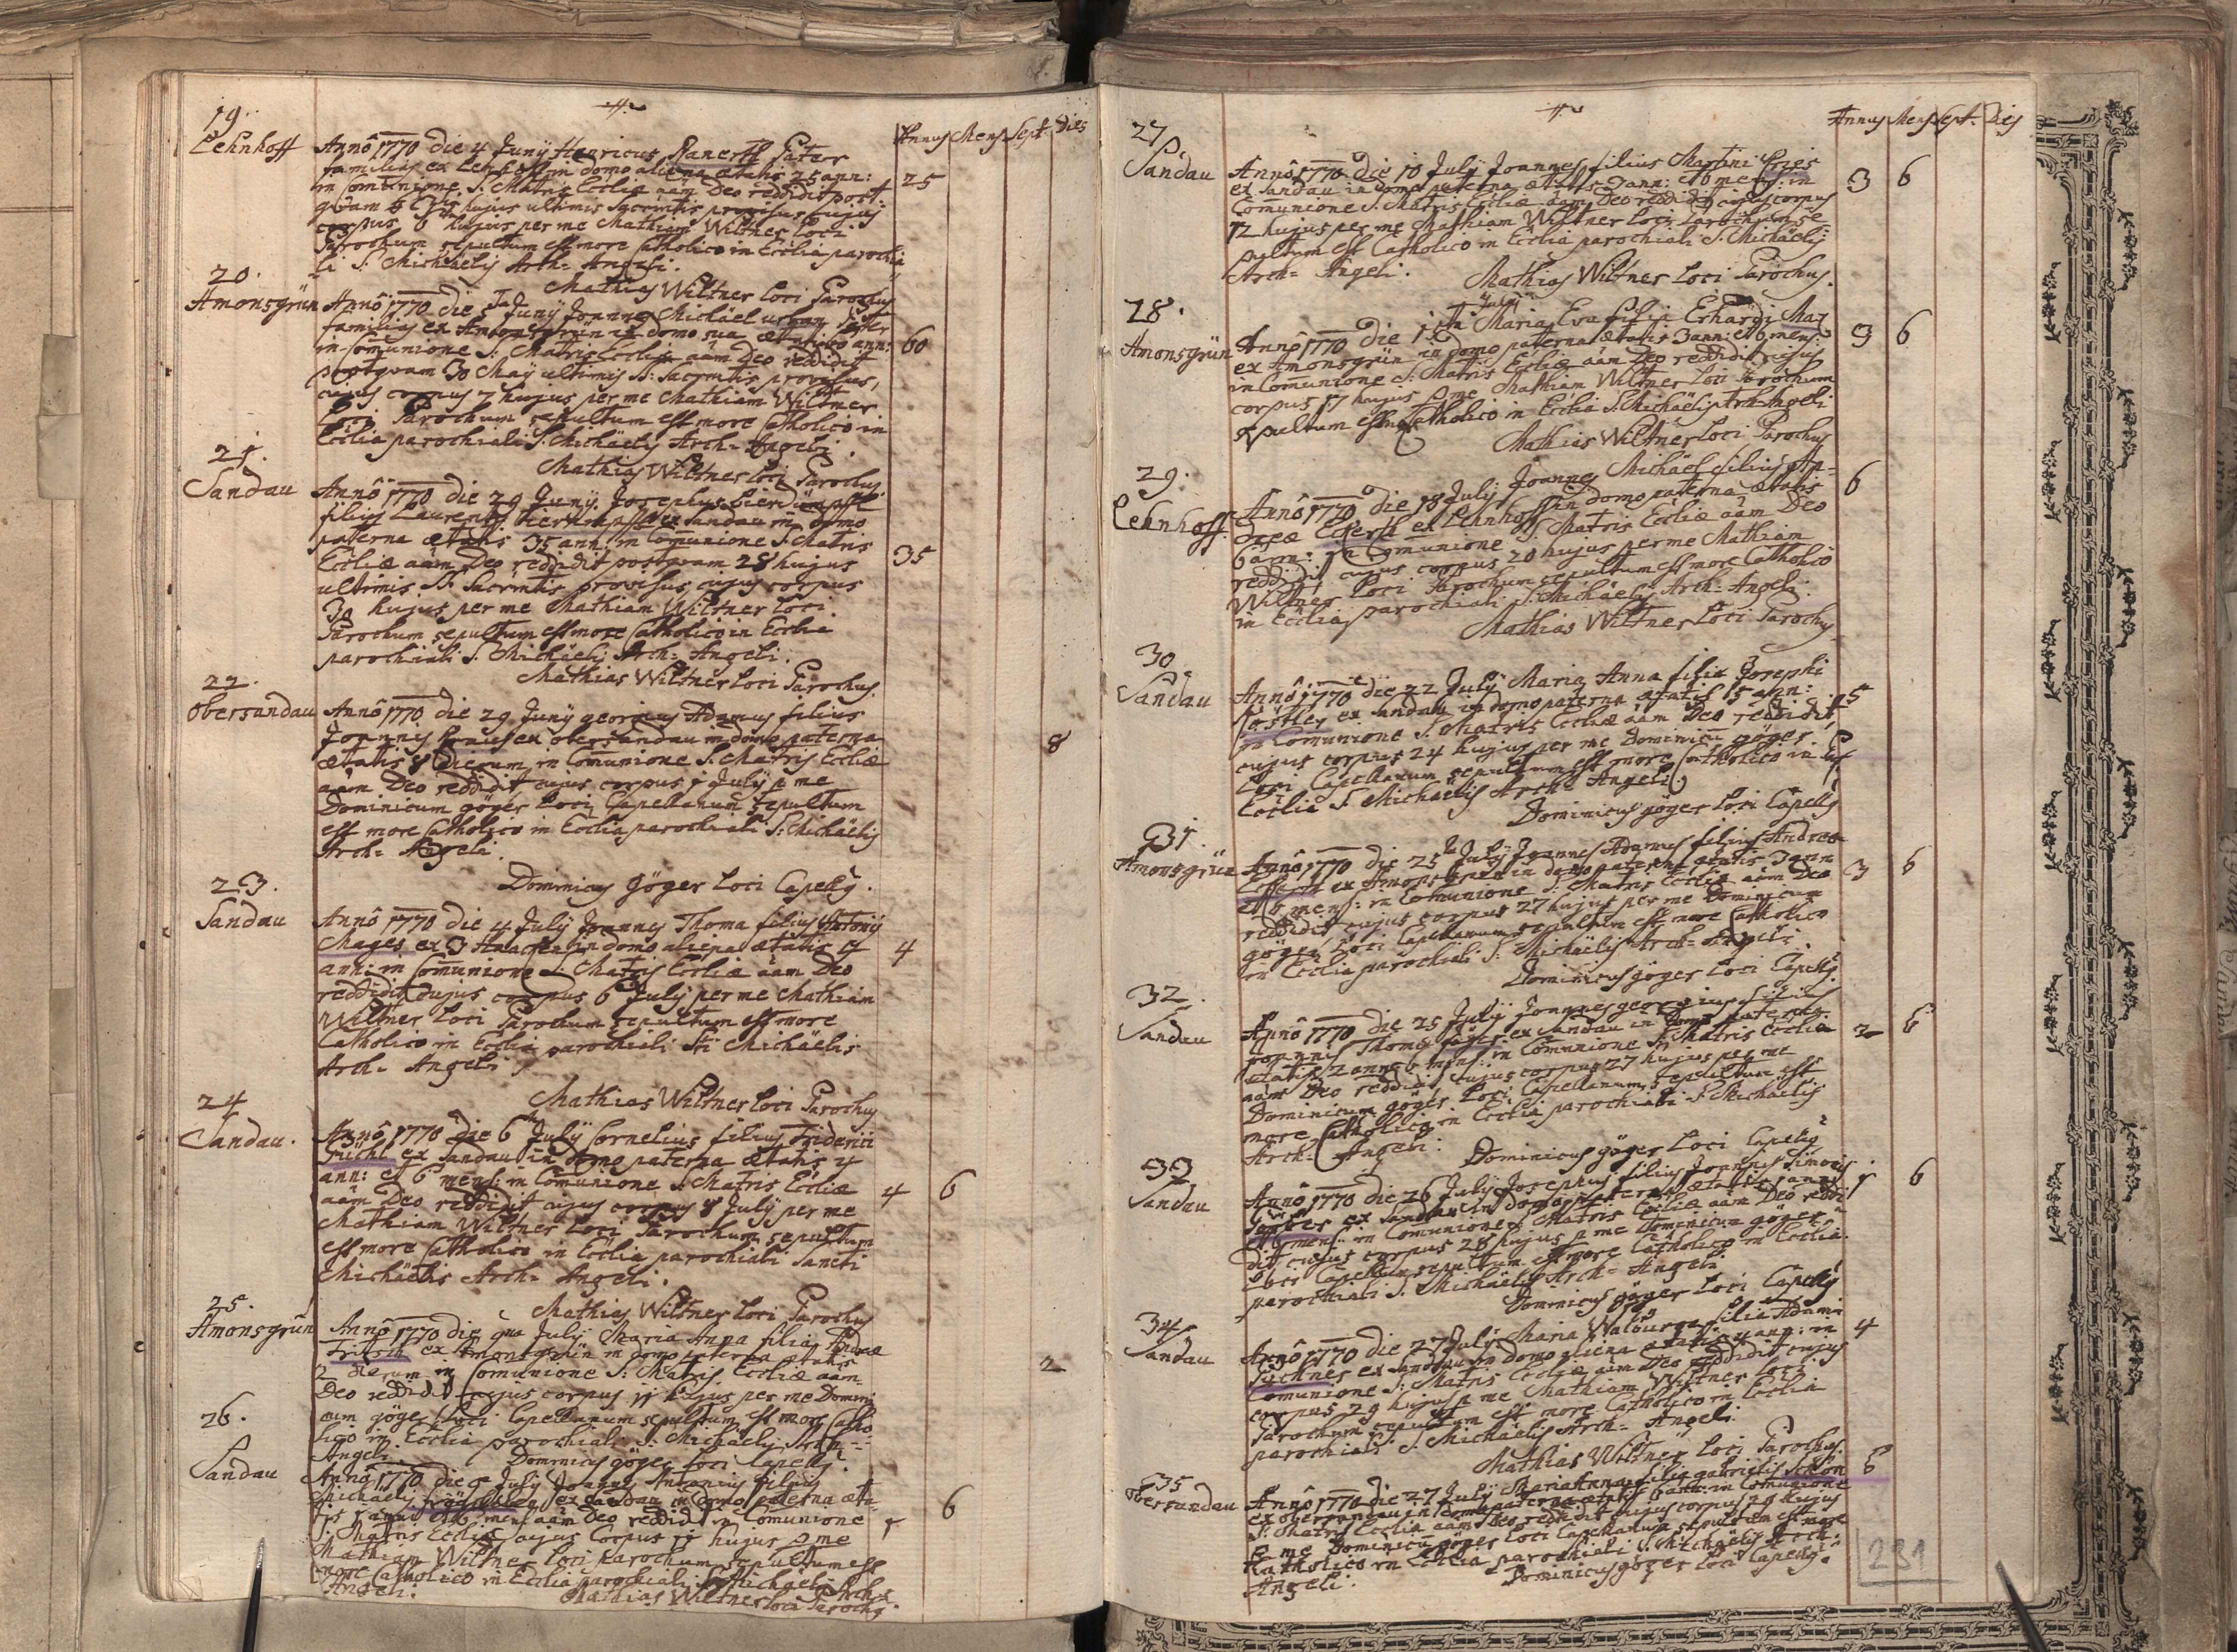 19.
Annus Mens Sept. Dies
Lehnhoff
Annô 1770 die 4 Junÿ Henricus Ranerth Pater
familias ex Lehnhoff in domo aliena ætatis 25 ann:
25
in Comunione S. Matris Eccliæ aâm Deo reddidit post-
quam hujus ultimis Sacrmtis provisus, cujus
corpus 6 hujus per me Mathiam Wiltner Loci
Parochum sepultum est more Catholico in Ecclia parochia
li S. Michäelis Arch-Angeli.
Mathias Wiltner Loci Parochus
20.
Amonsgrün
Annô 1770 die 5ta Junÿ Joannes Michäel urban Pater
familias ex Amonsgrün in domo sua ætatis 60 ann:
60
in Comunione S. Matris Eccliæ aâm Deo reddidit
postquam 30 Maÿ ultimis SS. Sacrmtis provisus,
cujus corpus 7 hujus per me Mathiam Wiltner
Loci Parochum sepultum est more Catholico in
Ecclia parochiali S. Michäelis Arch-Angeli.
Mathias Wiltner Loci Parochus
21.
Sandau
Annô 1770 die 29 Junÿ Josephus
filius Laurentÿ ex Sandau in domo
paterna ætatis 35 ann: in Comunione S. Matris
Eccliæ aâm Deo reddidit postquam 28 hujus
35
ultimis SS. Sacrmtis provisus, cujus corpus
30 hujus per me Mathiam Wiltner Loci
Parochum sepultum est more Catholico in Ecclia
parochiali S. Michäelis Arch-Angeli.
Mathias Wiltner Loci Parochus.
22.
Obersandau
Annô 1770 die 29 Junÿ georgius Adamus filius
Joannis ex obersandau in domo paterna
8
ætatis 8 Dierum in Comunione S. Matris Eccliæ
aâm Deo reddidit cujus corpus 1 Julÿ p me
Dominicum göger Loci Capellanum sepultum
est more Catholico in Ecclia parochiali S. Michäelis
Arch-Angeli.
Dominicus göger Loci Capells.
23.
Sandau
Annô 1770 die 4 Julÿ Joannes Thoma filius Antonÿ
Mages ex in domo aliena ætatis 4
4
ann: in Comunione S. Matris Eccliæ aâm Deo
reddidit cujus corpus 6 Julÿ per me Mathiam
Wiltner Loci Parochum sepultum est more
Catholico in Ecclia parochiali Sti Michäelis
Arch-Angeli
Mathias Wiltner Loci Parochus
24
Sandau.
Annô 1770 die 6 Julÿ Cornelius filius Friderici
ex Sandau in domo paterna ætatis 4
ann: et 6 mens: in Comunione S. Matris Eccliæ
4 6
aâm Deo reddidit cujus corpus 8 Julÿ per me
Mathiam Wiltner Loci Parochum sepultum
est more Catholico in Ecclia parochiali Sancti
Michäelis Arch-Angeli.
Mathias Wiltner Loci Parochus
25.
Amonsgrün
Annô 1770 die 9na Julÿ Maria Anna filia Andreæ
ex Amonsgrün in domo paterna ætatis
2
2 dierum in Comunione S: Matris Eccliæ aâm
Deo reddidit cujus corpus 11 hujus per me Domini
cum göger Loci Capellanum sepultum est more Catho
lico in Ecclia parochiali S: Michäelis Arch-
Angeli.
Dominicus göger Loci Capells.
26.
Sandau
Annô 1770 die 9 Julÿ Joannes Antonius filius
Michäelis ex Sandau in domo paterna æta-
6
tis 1 anni et 6 mens aâm Deo reddidit in Comunione
1
S. Matris Eccliæ cujus Corpus 11 hujus p me
Mathiam Wiltner Loci Parochum sepultum est
more Catholico in Ecclia parochiali S. Michäelis Arch-
Angeli.
Mathias Wiltner Loci Parochs.
27
Annus Mens Sept. Dies
Sandau
Annô 1770 die 10 Julÿ Joannes filius Martini
ex Sandau in domo paterna ætatis 3 ann: et 6 mens: in
3 6
Comunione S. Matris Eccliæ aâm Deo reddidit cujus corpus
12 hujus per me Mathiam Wiltner Loci Parochum se
pultum est Catholico in Ecclia parochiali S. Michäelis
Arch-Angeli.
Mathias Wiltner Loci Parochus.
28.
Amonsgrün
Julÿ
Annô 1770 die Maria Eva filia Erhardi
3 6
ex Amonsgrün in domo paterna ætatis 3 ann: et 6 mens:
in Comunione S: Matris Eccliæ aâm Deo reddidit cujus
corpus 17 hujus p me Mathiam Wiltner Loci Parochum
sepultum est more Catholico in Ecclia S. Michäelis Arch-Angeli
Mathias Wiltner Loci Parochus
29.
Lehnhoff.
Annô 1770 die 18 Julÿ Joannes Michäel filius An-
6
dreæ ex Lehnhoff in domo paterna ætatis
6 ann: in Comunione S. Matris Eccliæ aâm Deo
reddidit cujus corpus 20 hujus per me Mathiam
Wiltner Loci Parochum sepultum est more Catholico
in Ecclia parochiali S. Michäelis Arch-Angeli.
Mathias Wiltner Loci Parochus
30
Sandau
Annô 1770 die 22 Julÿ Maria Anna filia Josephi
ex Sandau in domo paterna ætatis 15 ann:
15
in Comunione S. Matris Eccliæ aâm Deo reddidit,
cujus corpus 24 hujus per me Dominicu göger
Loci Capellanum sepultum est more Catholico in
Ecclia S. Michäelis Arch-Angeli
Dominicus göger Loci Capells
31.
Amonsgrün
Annô 1770 die 25 Julÿ Joannes Adamus filius Andreæ
ex Amonsgrün in domo paterna ætatis 3 ann
3 6
et 6 mens: in Comunione S. Matris Eccliæ aâm Deo
reddidit cujus corpus 27 hujus per me Dominicum
göger Loci Capellanum sepultum est more Catholico
in Ecclia parochiali S. Michäelis Arch-Angeli.
Dominicus göger Loci Capells.
32.
Sandau
Annô 1770 die 25 Julÿ Joannes georgius filius
Joannis Thomæ ex Sandau in domo paterna
2 6
ætatis 2 ann 6 mens: in Comunione S. Matris Eccliæ
aâm Deo reddidit cujus corpus 27 hujus per me
Dominicum göger Loci Capellanum sepultum est
more Catholico in Ecclia parochiali S. Michäelis
Arch-Angeli.
Dominicus göger Loci Capells
33
Sandau
Annô 1770 die 26 Julÿ Josephus filius Joannis Simonis
ex Sandau in domo paterna ætatis 1 anni
1 6
et 6 mens: in Comunione S. Matris Eccliæ aâm Deo reddi
dit cujus corpus 28 hujus p me Dominicum göger
Loci Capellanum sepultum est more Catholico in Ecclia
parochiali S. Michäelis Arch-Angeli
Dominicus göger Loci Capells
34
Sandau
Annô 1770 die 27 Julÿ Maria Walburga filia Adami
4
ex Sandau in domo aliena ætatis 4 ann: in
Comunione S: Matris Eccliæ aâm Deo reddidit cujus
corpus 29 hujus p me Mathiam Wiltner Loci
Parochum sepultum est more Catholico in Ecclia
parochiali S. Michäelis Arch-Angeli.
Mathias Wiltner Loci Parochus.
35
Obersandau
Annô 1770 die 27 Julÿ Maria Anna filia gabrielis Schön
6
ex obersandau in domo paterna ætatis 6 ann: in Comunione
S. Matris Eccliæ aâm Deo reddidit cujus corpus 29 hujus
p me Dominicu göger Loci Capellanum sepultum est more
Catholico in Ecclia parochiali S. Michäelis Arch-
Angeli.
Dominicus göger Loci Capells.
231